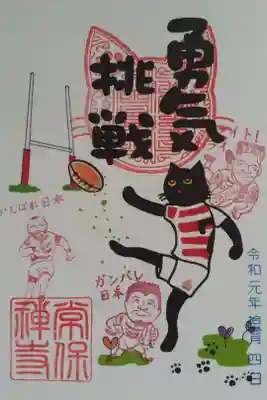 勇気
挑戦
イト!
がんばれ日本
ガンバレ
日本
令和元年拾月四日
常保
禅寺